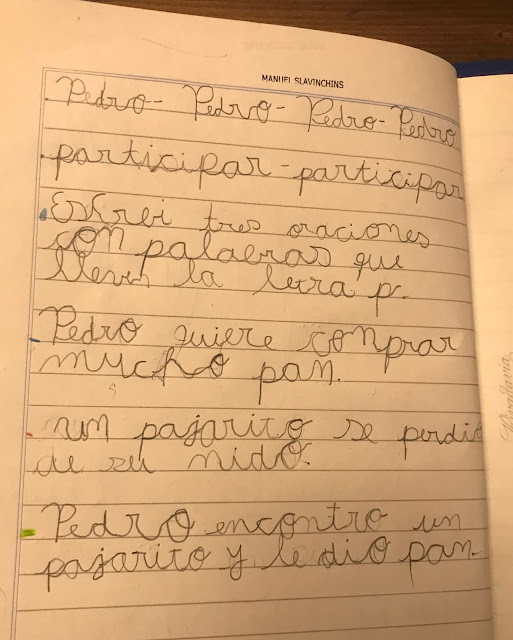 MANUEL SLAVINCHINS
Pedro - Pedro - Pedro - Pedro
participar - participar
Escrei tres oraciones
con palabras que
lleven la letra p.
Pedro quiere comprar
mucho pan.
un pajarito se perdio
de su nido.
Pedro encontro un
pajarito y le dio pan.